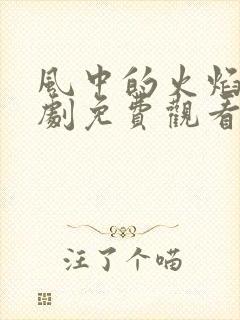 風中的火焰
劇免費觀看
注了个喵